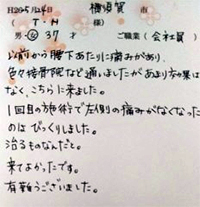 H2025/1/24日 横須賀 市
( T・H 様)
男・女 37才 ご職業(会社員)
以前から腰下あたりに痛みがあり、
色々接骨院など通いましたがあまり効果は
なく、こちらに来ました。
1回目の施術で左側の痛みがなくなった
のはびっくりしました。
治るものなんだと。
来てよかったです。
有難うございました。